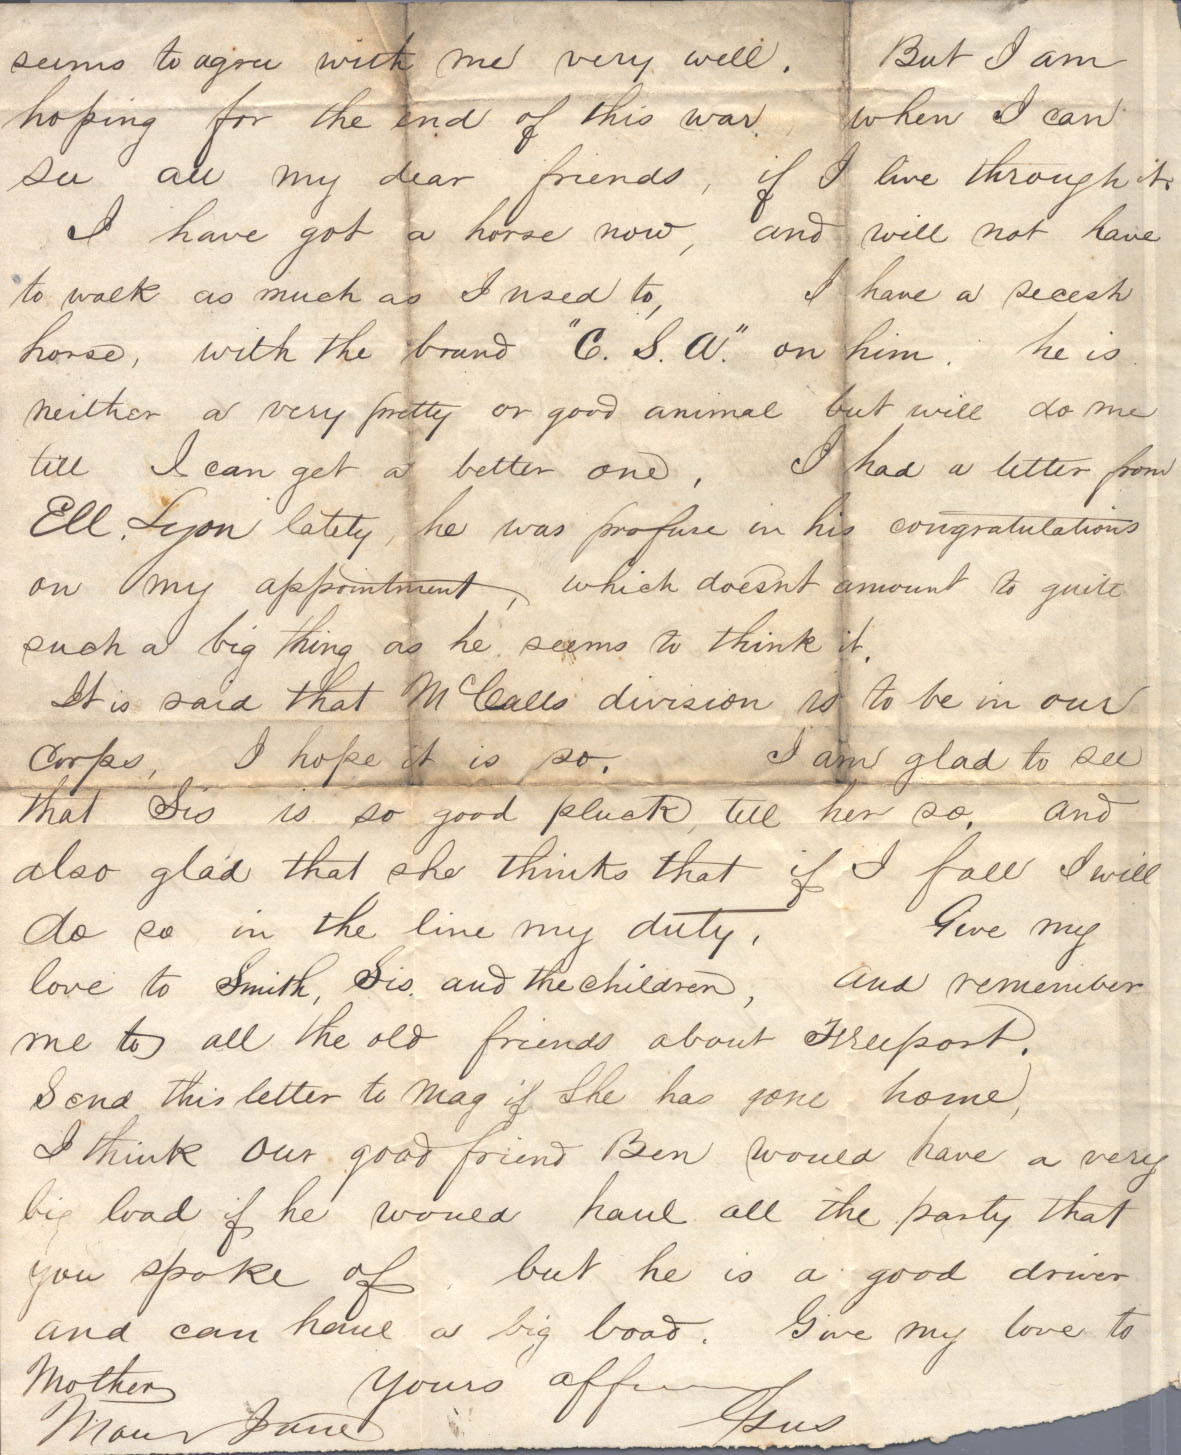 seems to agree with me very well. But I am
hoping for the end of this war, when I can
see all my dear friends, if I live through it.
I have got a horse now, and will not have
to walk as much as I used to, I have a secesh
horse, with the brand "C. S. A." on him. he is
neither a very pretty or good animal but will do me
till I can get a better one, I had a letter from
Ell. Lyon lately, he was profuse in his congratulations
on my appointment, which doesnt amount to quite
such a big thing as he seems to think it.
It is said that McCalls division is to be in our
Corps, I hope it is so. I am glad to see
that Sis is so good pluck, tell her so. and
also glad that she thinks that if I fall I will
do so in the line my duty. Give my
love to Smith, Sis. and the children, and remember
me to all the old friends about Freeport.
Send this letter to Mag if She has gone home,
I think our good friend Ben would have a very
big load if he would haul all the party that
you spoke of. but he is a good driver
and can haul a big load. Give my love to
Mother Yours aff
Gus